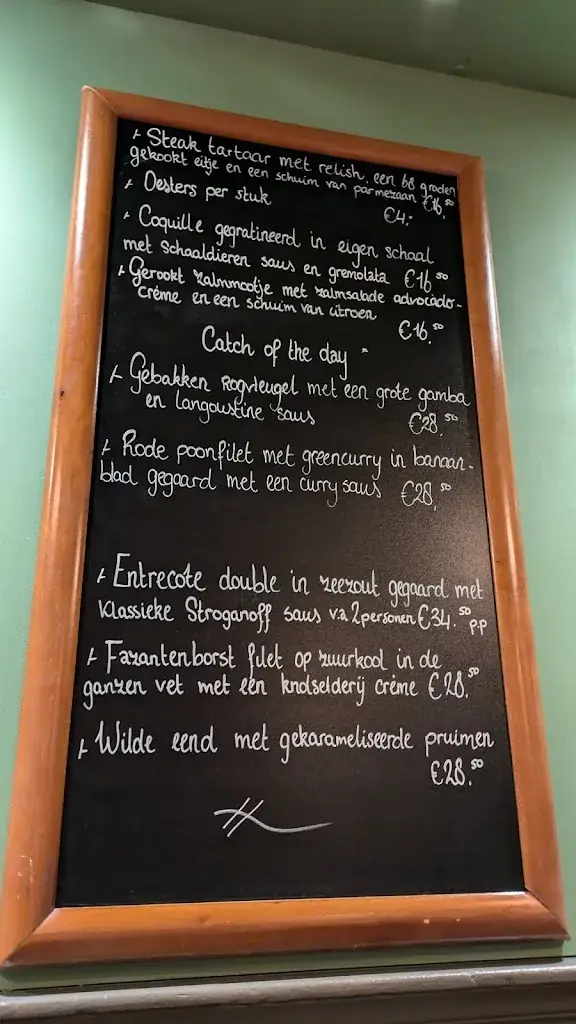 Steak tartaar met relish, een 68 graden
gekookt eitje en een schuim van parmezaan €16,50
Oesters per stuk €4,-
Coquille gegratineerd in eigen schaal
met Schaaldieren saus en gremolata €16,50
Gerookt zalmmootje met zalmsalade advocado-
crème en een schuim van citroen
€16,50
Catch of the day
Gebakken Rogvleugel met een grote gamba
en langoustine saus €28,50
Rode poonfilet met greencurry in banaan-
blad gegaard met een curry saus €28,50
Entrecote double in zeezout gegaard met
Klassieke Stroganoff saus v.a 2personen €34,50 p.p
Fazantenborst filet op zuurkool in de
ganzen vet met een knolselderij crème €28,50
Wilde eend met gekarameliseerde pruimen
€28,50